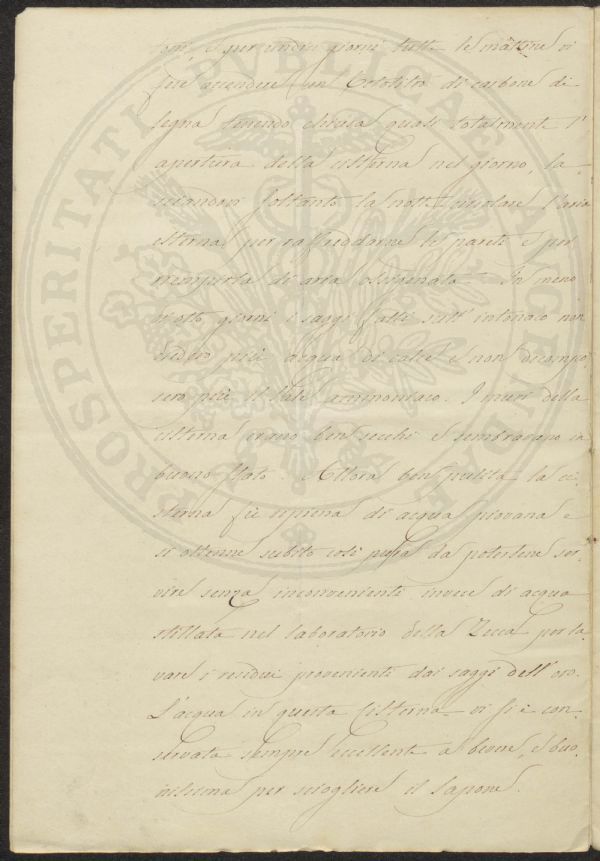 e per undici giorni tutte le mattine vi
feci accendere un Ectolitro di carbone di
legna tenendo chiusa quasi totalmente l'
apertura della cisterna nel giorno, la-
sciandovi soltanto la notte circolare l'aria
esterna per raffreddarne le pareti e per
riempirla di aria ossigenata. In meno
d'otto giorni i saggi fatti sull' intonaco non
diedero più acqua di calce e non decompo-
sero più il Sale ammoniaco. I muri della
cisterna erano ben secchi e sembravano in
buono stato. Allora ben pulita la ci-
sterna fù ripiena di acqua piovana e
si ottenne subito così pura da potersene ser-
vire senza inconvenienti invece di acqua
stillata nel laboratorio della Zecca per la-
vare i residui provenienti dai saggi dell' oro.
L'acqua in questa Cisterna vi si è con-
servata sempre eccellente a bevere, e buo-
nissima per sciogliere il Sapone.
PROSPERITATI PUBLICAE AUGENDAE